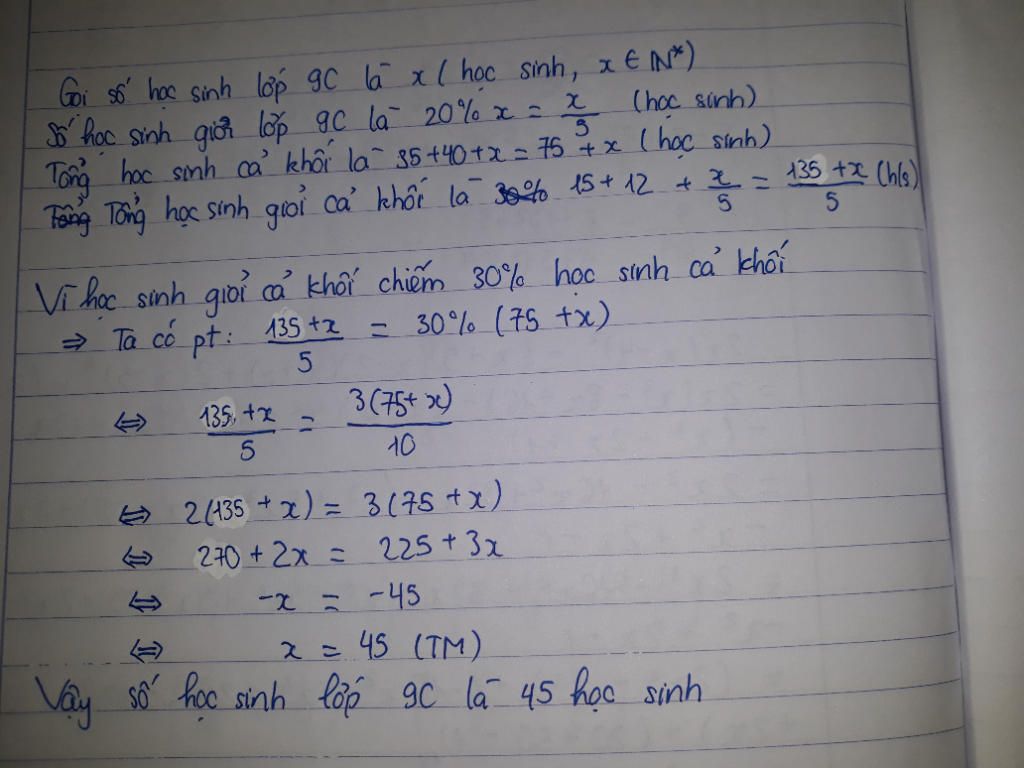 Gọi số học sinh lớp 9C là x (học sinh, x ∈ N*)
Số học sinh giỏi lớp 9C là 20% x = x/5 (học sinh)
Tổng học sinh cả khối là 35+40+x = 75 + x (học sinh)
Tổng Tổng học sinh giỏi cả khối là 30% 15 + 12 + x/5 = (135 + x)/5 (h/s)
Vì học sinh giỏi cả khối chiếm 30% học sinh cả khối
⇒ Ta có pt: (135 + x)/5 = 30% (75 + x)
⇔ (135 + x)/5 = 3(75 + x)/10
⇔ 2(135 + x) = 3(75 + x)
⇔ 270 + 2x = 225 + 3x
⇔ -x = -45
⇔ x = 45 (TM)
Vậy số học sinh lớp 9C là 45 học sinh